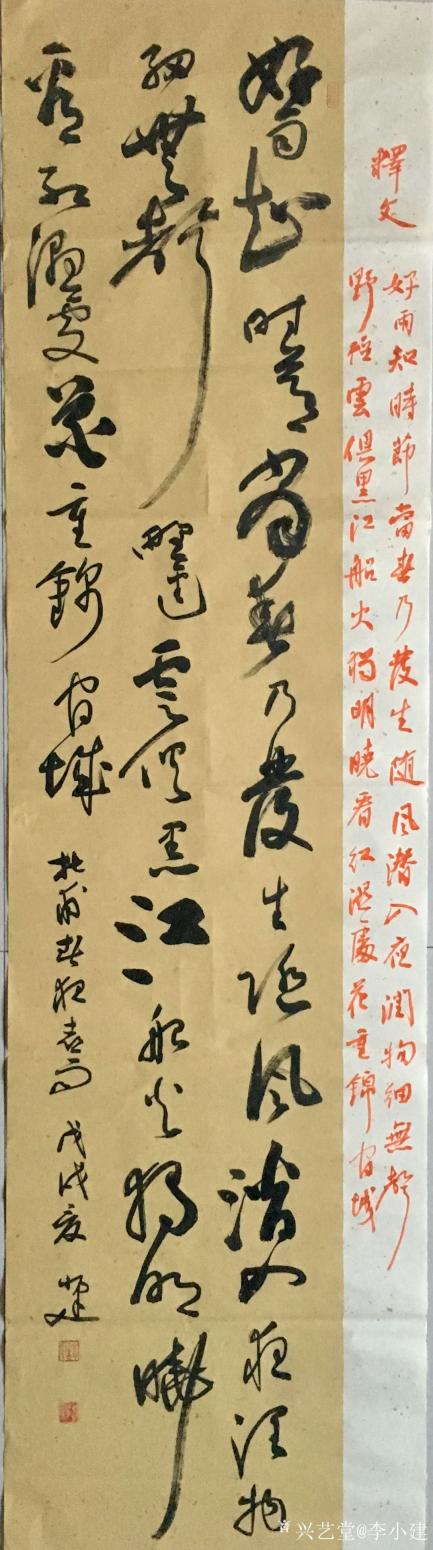 釋文
好雨知時節當春乃發生随風潜入夜潤物細無聲
野徑雲俱黑江船火獨明曉看紅濕處花重錦官城
好雨知時節當春乃發生随風潜入夜润物
細無聲野徑雲俱黑江船火獨明曉
看紅濕處花重錦官城 杜甫春夜喜雨 戊戌夏 小建
兴艺堂@李小建